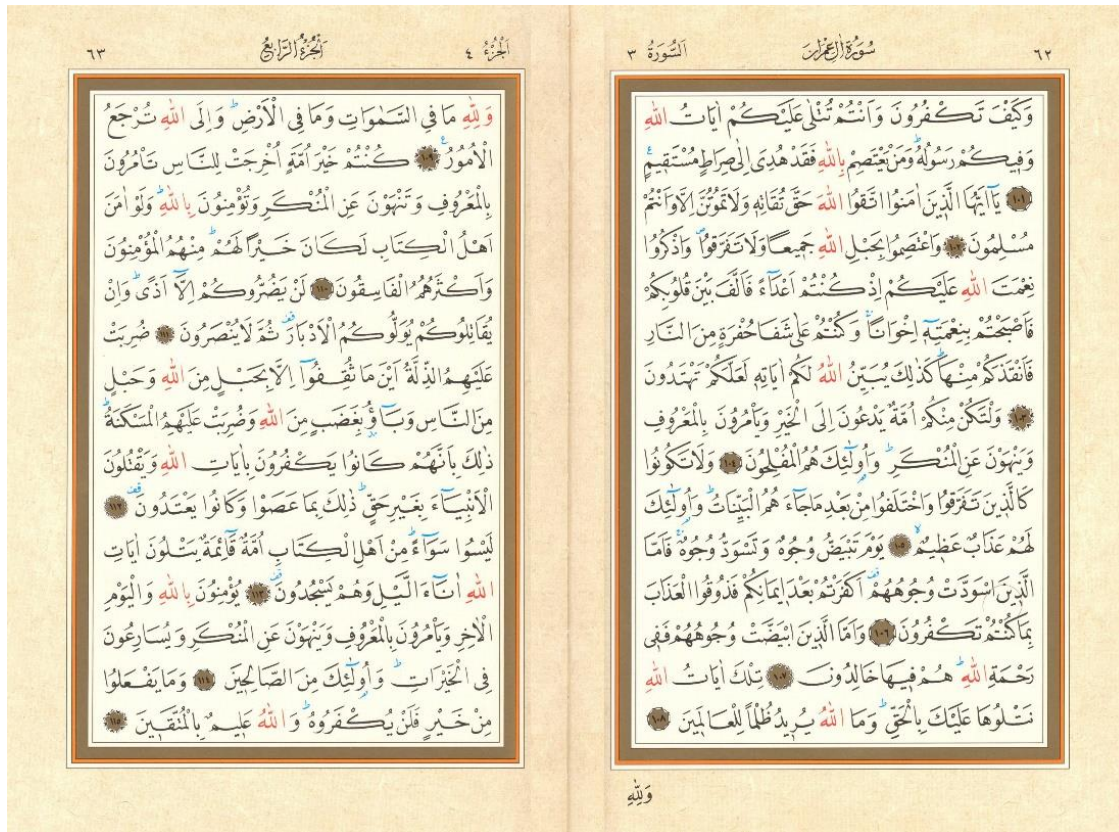 ٦٢
سُورَةُ اٰلِ عِمْرٰنَ
اَلسُّورَةُ ٣
وَكَيْفَ تَكْفُرُونَ وَاَنْتُمْ تُتْلٰى عَلَيْكُمْ اٰيَاتُ اللّٰهِ
وَفِيكُمْ رَسُولُهُ ۜ وَمَنْ يَعْتَصِمْ بِاللّٰهِ فَقَدْ هُدِىَ اِلٰى صِرَاطٍ مُسْتَقِيمٍ ۟
﴿١٠١﴾ يَٓا اَيُّهَا الَّذٖينَ اٰمَنُوا اتَّقُوا اللّٰهَ حَقَّ تُقَاتِهٖ وَلَا تَمُوتُنَّ اِلَّا وَاَنْتُمْ
مُسْلِمُونَ ﴿١٠٢﴾ وَاعْتَصِمُوا بِحَبْلِ اللّٰهِ جَمٖيعًا وَلَا تَفَرَّقُوا ۖ وَاذْكُرُوا
نِعْمَتَ اللّٰهِ عَلَيْكُمْ اِذْ كُنْتُمْ اَعْدَٓاءً فَاَلَّفَ بَيْنَ قُلُوبِكُمْ
فَاَصْبَحْتُمْ بِنِعْمَتِهٖٓ اِخْوَانًا ۚ وَكُنْتُمْ عَلٰى شَفَا حُفْرَةٍ مِنَ النَّارِ
فَاَنْقَذَكُمْ مِنْهَا ۜ كَذٰلِكَ يُبَيِّنُ اللّٰهُ لَكُمْ اٰيَاتِهٖ لَعَلَّكُمْ تَهْتَدُونَ
﴿١٠٣﴾ وَلْتَكُنْ مِنْكُمْ اُمَّةٌ يَدْعُونَ اِلَى الْخَيْرِ وَيَأْمُرُونَ بِالْمَعْرُوفِ
وَيَنْهَوْنَ عَنِ الْمُنْكَرِ ۜ وَاُو۬لٰٓئِكَ هُمُ الْمُفْلِحُونَ ﴿١٠٤﴾ وَلَا تَكُونُوا
كَالَّذٖينَ تَفَرَّقُوا وَاخْتَلَفُوا مِنْ بَعْدِ مَا جَٓاءَهُمُ الْبَيِّنَاتُ ۜ وَاُو۬لٰٓئِكَ
لَهُمْ عَذَابٌ عَظٖيمٌ ۙ ﴿١٠٥﴾ يَوْمَ تَبْيَضُّ وُجُوهٌ وَتَسْوَدُّ وُجُوهٌ ۚ فَاَمَّا
الَّذٖينَ اسْوَدَّتْ وُجُوهُهُمْ ۠ اَكَفَرْتُمْ بَعْدَ اٖيمَانِكُمْ فَذُوقُوا الْعَذَابَ
بِمَا كُنْتُمْ تَكْفُرُونَ ﴿١٠٦﴾ وَاَمَّا الَّذٖينَ ابْيَضَّتْ وُجُوهُهُمْ فَفٖى
رَحْمَةِ اللّٰهِ ۜ هُمْ فٖيهَا خَالِدُونَ ﴿١٠٧﴾ تِلْكَ اٰيَاتُ اللّٰهِ
نَتْلُوهَا عَلَيْكَ بِالْحَقِّ ۜ وَمَا اللّٰهُ يُرٖيدُ ظُلْمًا لِلْعَالَمٖينَ ﴿١٠٨﴾
وَلِلّٰهِ
اَلْجُزْءُ ٤
اَلْجُزْءُ الرَّابِعُ
٦٣
وَلِلّٰهِ مَا فِى السَّمٰوَاتِ وَمَا فِى الْاَرْضِ ۜ وَاِلَى اللّٰهِ تُرْجَعُ
الْاُمُورُ ۟ ﴿١٠٩﴾ كُنْتُمْ خَيْرَ اُمَّةٍ اُخْرِجَتْ لِلنَّاسِ تَأْمُرُونَ
بِالْمَعْرُوفِ وَتَنْهَوْنَ عَنِ الْمُنْكَرِ وَتُؤْمِنُونَ بِاللّٰهِ ۜ وَلَوْ اٰمَنَ
اَهْلُ الْكِتَابِ لَكَانَ خَيْرًا لَهُمْ ۜ مِنْهُمُ الْمُؤْمِنُونَ
وَاَكْثَرُهُمُ الْفَاسِقُونَ ﴿١١٠﴾ لَنْ يَضُرُّوكُمْ اِلَّٓا اَذًى ۜ وَاِنْ
يُقَاتِلُوكُمْ يُوَلُّوكُمُ الْاَدْبَارَ ۠ ثُمَّ لَا يُنْصَرُونَ ﴿١١١﴾ ضُرِبَتْ
عَلَيْهِمُ الذِّلَّةُ اَيْنَ مَا ثُقِفُٓوا اِلَّا بِحَبْلٍ مِنَ اللّٰهِ وَحَبْلٍ
مِنَ النَّاسِ وَبَٓاؤُ۫ بِغَضَبٍ مِنَ اللّٰهِ وَضُرِبَتْ عَلَيْهِمُ الْمَسْكَنَةُ ۜ
ذٰلِكَ بِاَنَّهُمْ كَانُوا يَكْفُرُونَ بِاٰيَاتِ اللّٰهِ وَيَقْتُلُونَ
الْاَنْبِيَٓاءَ بِغَيْرِ حَقٍّ ۜ ذٰلِكَ بِمَا عَصَوْا وَكَانُوا يَعْتَدُونَ ۠ ﴿١١٢﴾
لَيْسُوا سَوَٓاءً ۜ مِنْ اَهْلِ الْكِتَابِ اُمَّةٌ قَٓائِمَةٌ يَتْلُونَ اٰيَاتِ
اللّٰهِ اٰنَٓاءَ الَّيْلِ وَهُمْ يَسْجُدُونَ ۠ ﴿١١٣﴾ يُؤْمِنُونَ بِاللّٰهِ وَالْيَوْمِ
الْاٰخِرِ وَيَأْمُرُونَ بِالْمَعْرُوفِ وَيَنْهَوْنَ عَنِ الْمُنْكَرِ وَيُسَارِعُونَ
فِى الْخَيْرَاتِ ۜ وَاُو۬لٰٓئِكَ مِنَ الصَّالِحٖينَ ﴿١١٤﴾ وَمَا يَفْعَلُوا
مِنْ خَيْرٍ فَلَنْ يُكْفَرُوهُ ۜ وَاللّٰهُ عَلٖيمٌ بِالْمُتَّقٖينَ ﴿١١٥﴾